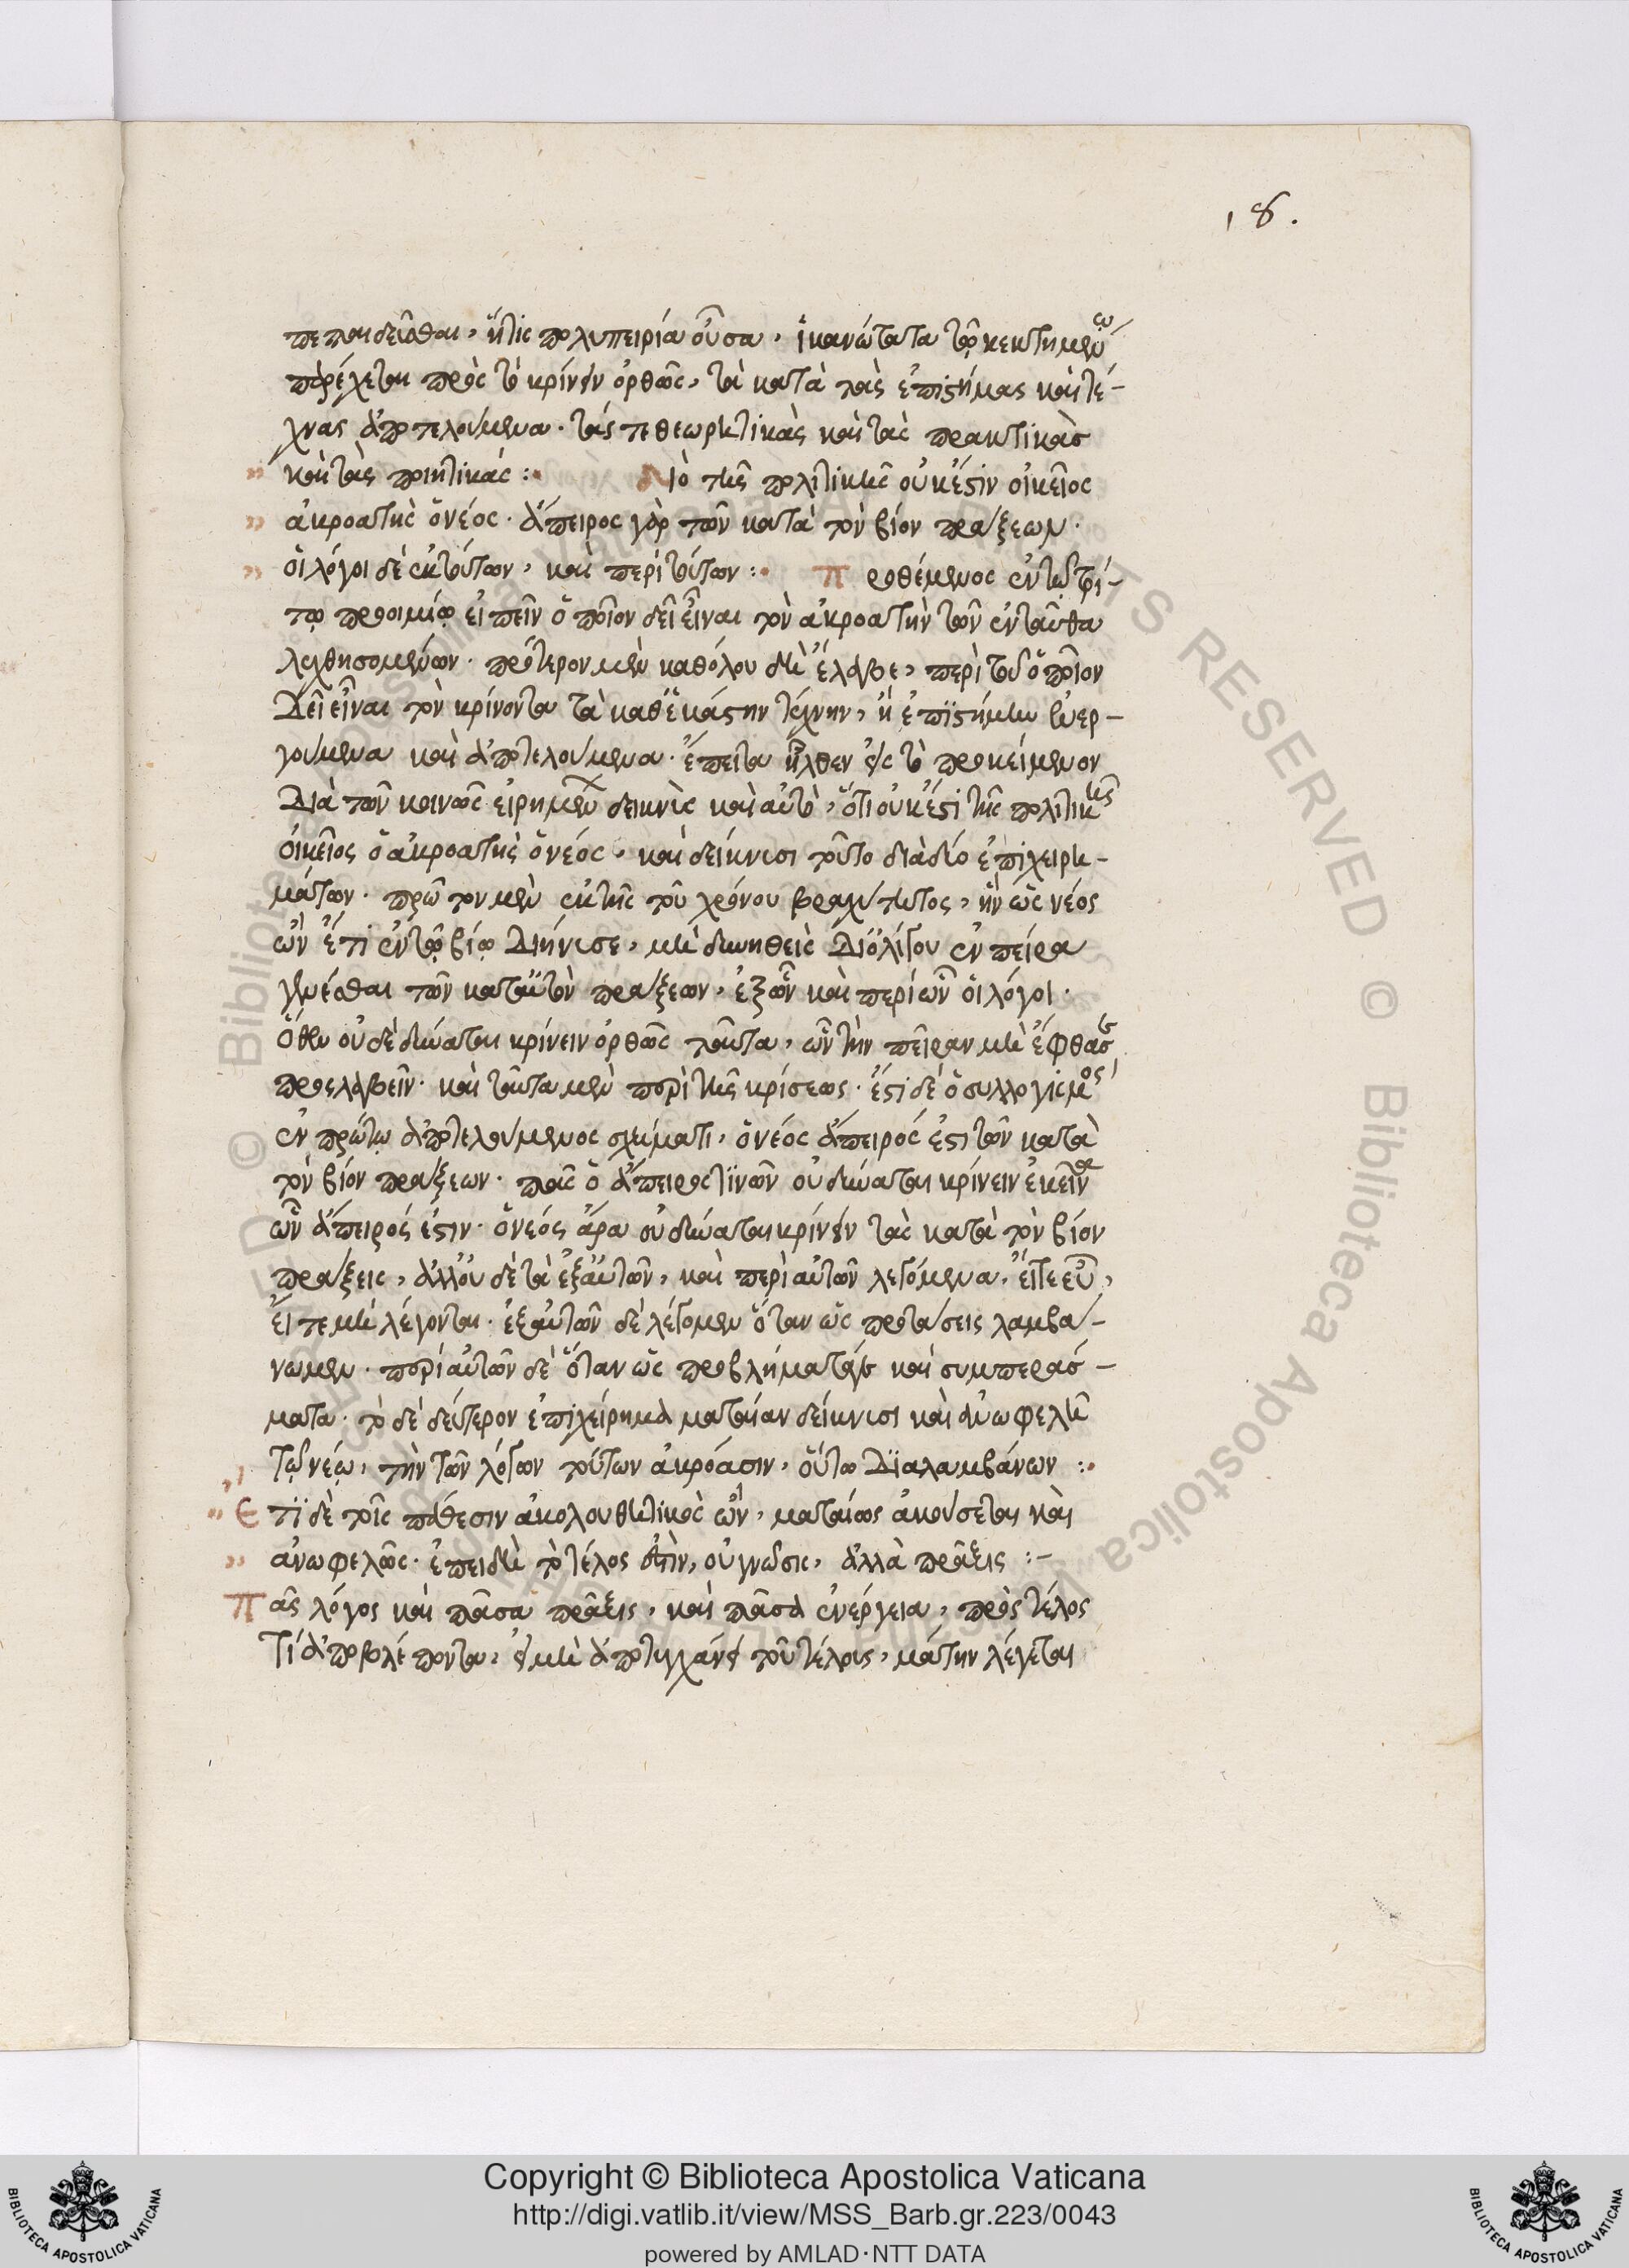 18.
πεπαιδεῦσθαι, ἥτις πολυπειρία οὖσα, ἱκανώτατα τῷ κεκτημένῳ
παρέχεται πρὸς τὸ κρίνειν ὀρθῶς, τὰ κατὰ τὰς ἐπιστήμας καὶ τέ-
χνας ἀποτελούμενα. τάς τε θεωρητικὰς καὶ τὰς πρακτικὰσ
καὶ τὰς ποιητικάς : Διὸ τῆς πολιτικῆς οὐκ ἔστιν οἰκεῖος
ἀκροατὴς ὁ νέος. ἄπειρος γὰρ τῶν κατὰ τὸν βίον πράξεων.
οἱ λόγοι δὲ ἐκ τούτων, καὶ περὶ τούτων : Προθέμενος ἐν τῷ
τῳ προοιμίῳ εἰπεῖν ὁποῖον δεῖ εἶναι τὸν ἀκροατὴν τῶν ἐνταῦθα
λεχθησομένων. πρότερον μὲν καθόλου διέλαβε, περὶ τοῦ ὁποῖον
Δεῖ εἶναι τὸν κρίνοντα τὰ καθ' ἑκάστην τέχνην, ἢ ἐπιστήμην ἐνερ-
γούμενα καὶ ἀποτελούμενα. ἔπειτα ἦλθεν εἰς τὸ προκείμενον
Διὰ τῶν κοινῶς εἰρημένων δεικνὺς καὶ αὐτὸ, ὅτι οὐκ ἔστι τῆς πολιτικῆς
οἰκεῖος ὁ ἀκροατὴς ὁ νέος. καὶ δείκνυσι τοῦτο διὰ δύο ἐπιχειρη-
μάτων. πρῶτον μὲν ἐκ τῆς τοῦ χρόνου βραχύτητος, ἣν ὡς νέος
ὢν ἔτι ἐν τῷ βίῳ Διήνυσε, μὴ δυνηθεὶς Δι' ὀλίγου ἐν πείρα
γενέσθαι τῶν κατ' αὐτὸν πράξεων, ἐξ ὧν καὶ περὶ ὧν οἱ λόγοι.
Ὅθεν οὐδὲ δύναται κρίνειν ὀρθῶς ταῦτα, ὧν τὴν πεῖραν μὴ ἔφθασε
προσλαβεῖν. καὶ ταῦτα μὲν περὶ τῆς κρίσεως. ἔστι δὲ ὁ συλλογισμὸς
ἐν πρώτῳ ἀποτελούμενος σχήματι, ὁ νέος ἄπειρός ἐστι τῶν κατὰ
τὸν βίον πράξεων. πᾶς ὁ ἄπειρος τινῶν οὐ δύναται κρίνειν ἐκεῖνα
ὧν ἄπειρός ἐστιν. ὁ νέος ἄρα οὐ δύναται κρίνειν τὰς κατὰ τὸν βίον
πράξεις, ἀλλ' οὐδὲ τὰ ἐξ αὐτῶν, καὶ περὶ αὐτῶν λεγόμενα, εἴτε εὖ,
εἴτε μὴ λέγονται. ἐξ αὐτῶν δὲ λέγομεν ὅταν ὡς προτάσεις λαμβά-
νωμεν. περὶ αὐτῶν δὲ ὅταν ὡς προβλήματα καὶ συμπεράσ-
ματα. τὸ δὲ δεύτερον ἐπιχείρημα ματαίαν δείκνυσι καὶ ἀνωφελῆ
Τῷ νέῳ, τὴν τῶν λόγων τούτων ἀκρόασιν, οὕτω Διαλαμβάνων :
Ετι δὲ τοῖς πάθεσιν ἀκολουθητικὸς ὢν, ματαίως ἀκούσεται καὶ
ἀνωφελῶς. ἐπειδὴ τὸ τέλος ἐστὶν, οὐ γνῶσις, ἀλλὰ πρᾶξις :-
Πᾶς λόγος καὶ πᾶσα πρᾶξις, καὶ πᾶσα ἐνέργεια, πρὸς τέλος
Τί ἀποβλέποντα, εἰ μὴ ἀποτυγχάνει τοῦ τέλους, μάτην λέγεται
Copyright © Biblioteca Apostolica Vaticana
http://digi.vatlib.it/view/MSS_Barb.gr.223/0043
powered by AMLAD·NTT DATA
BIBLIOTECA APOSTOLICA VATICANA
BIBLIOTECA APOSTOLICA VATICANA